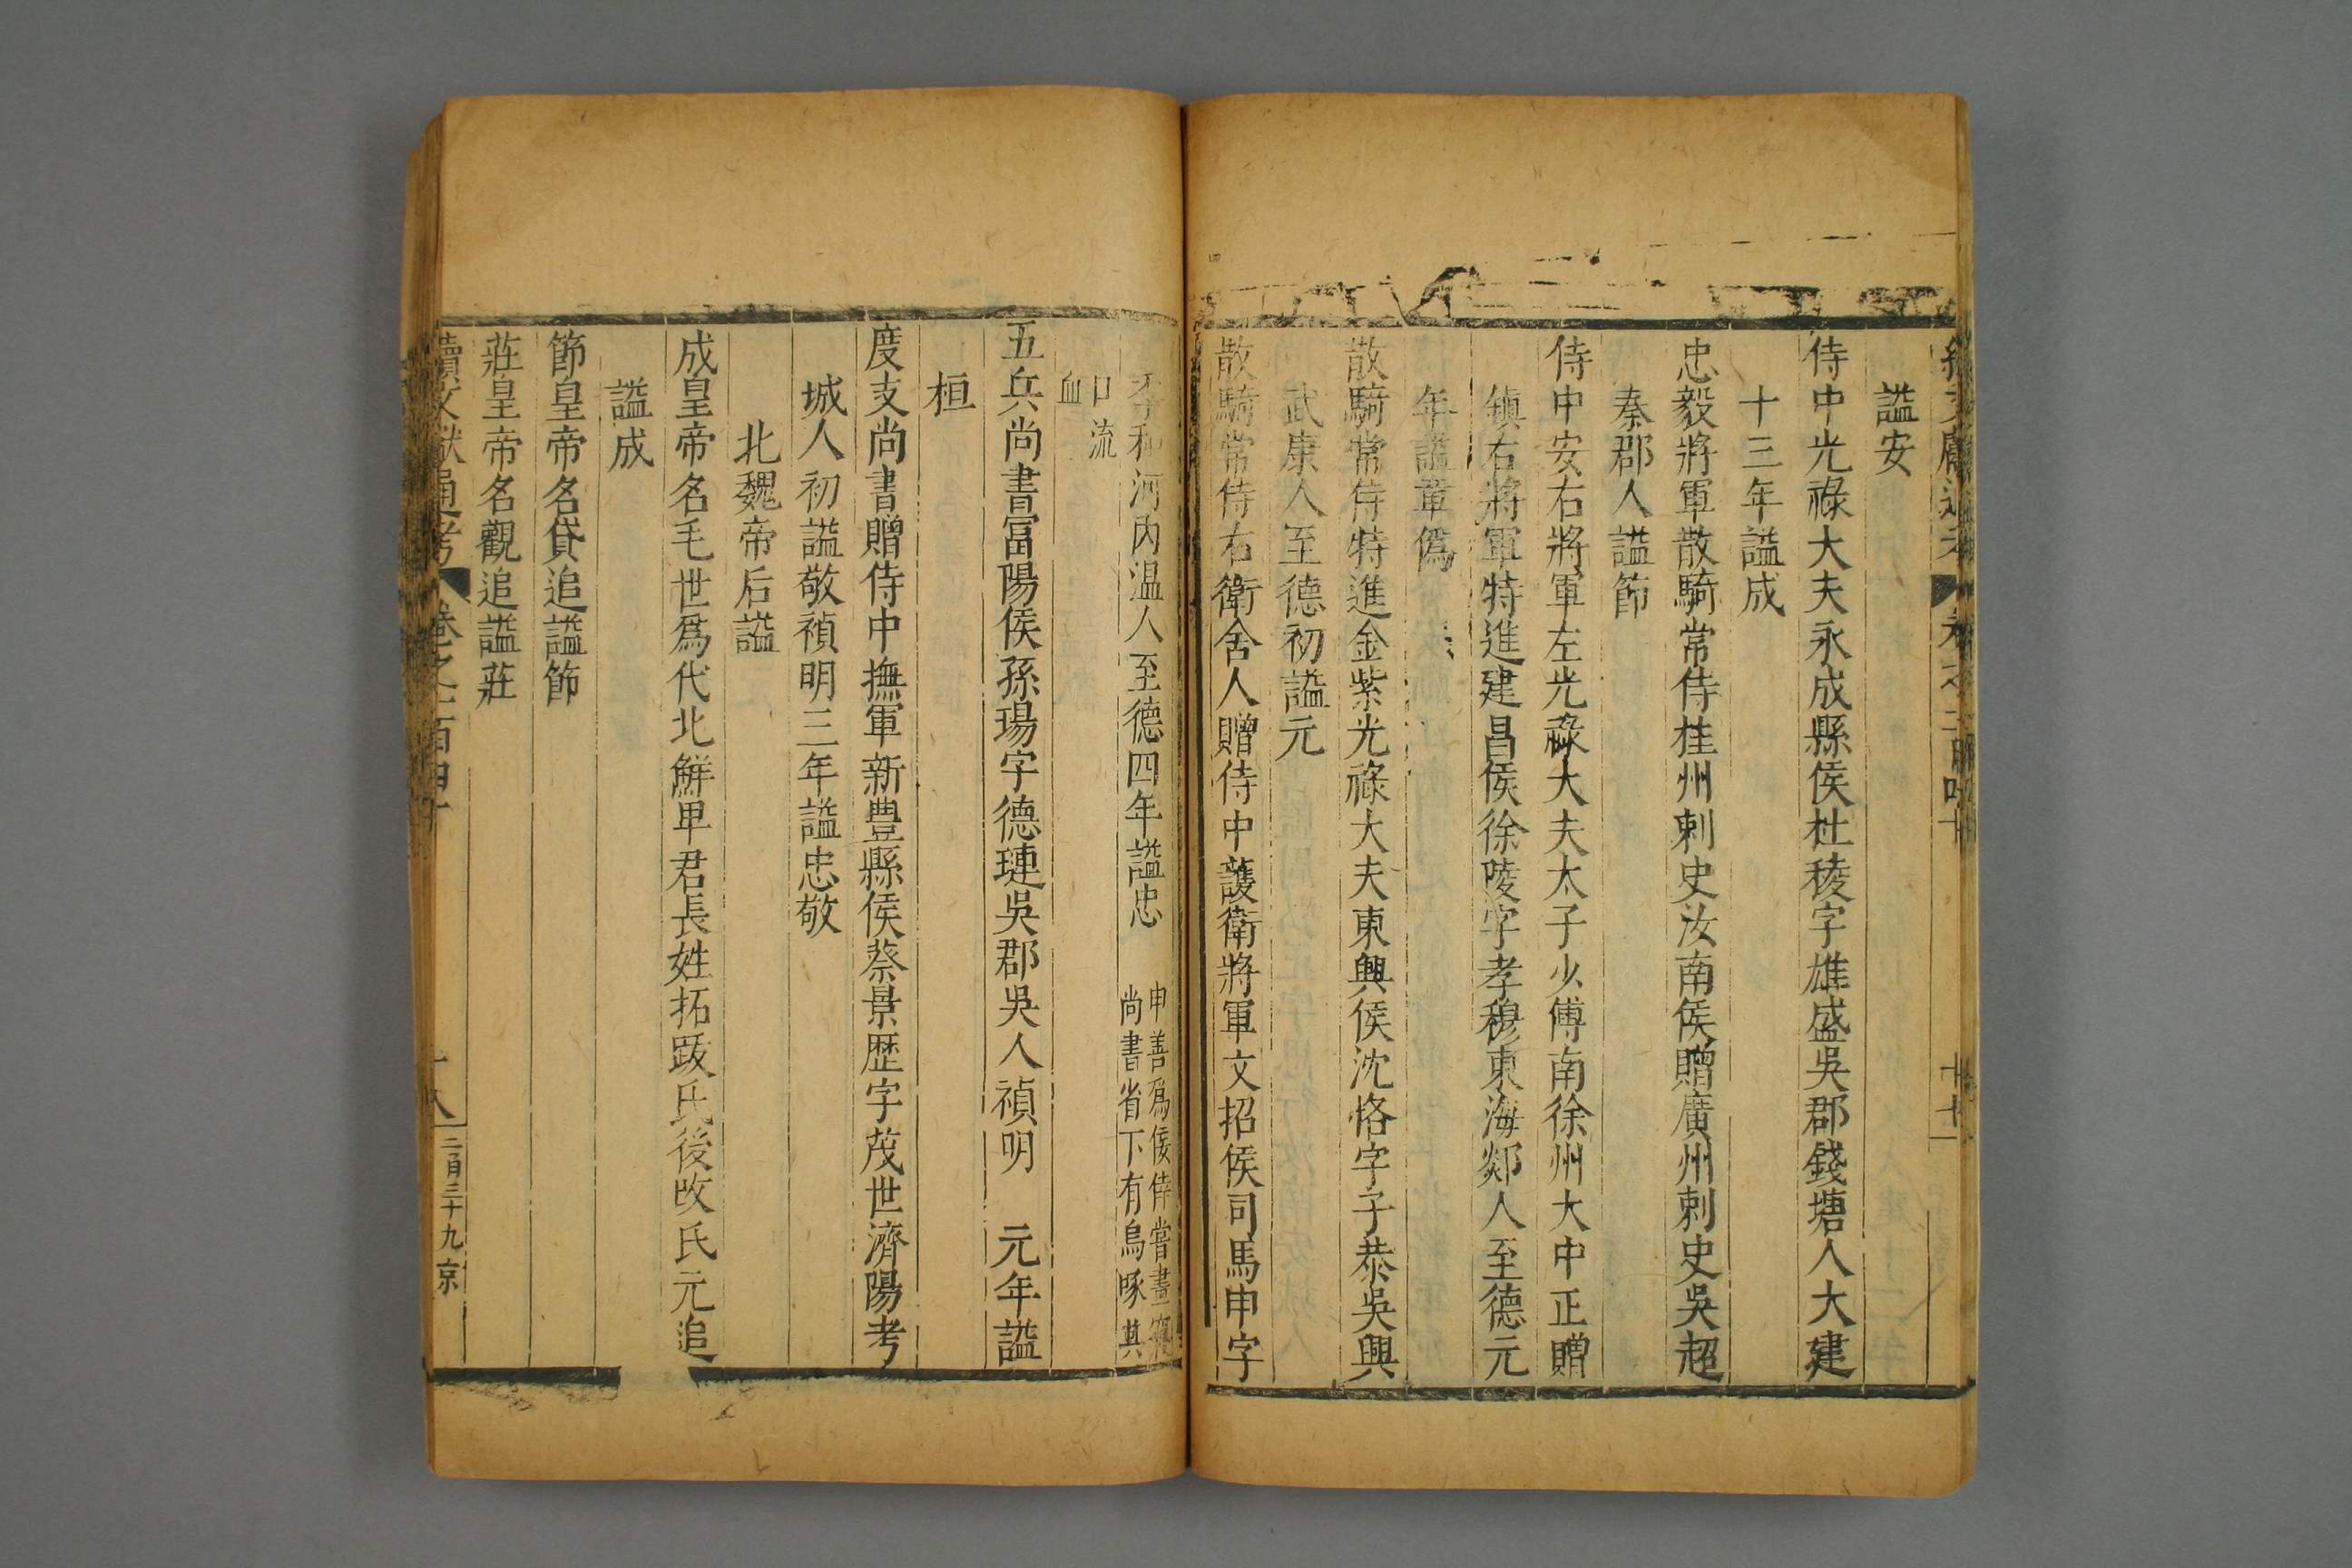 謚安
侍中光祿大夫永成縣侯杜稜字雄盛吳郡錢塘人大建
十三年謚成
忠毅將軍散騎常侍桂州刺史汝南侯贈廣州刺史吳超
秦郡人謚節
侍中安右將軍左光祿大夫太子少傅南徐州大中正贈
鎮右將軍特進建昌侯徐陵字孝穆東海郯人至德元
年謚章僞
散騎常侍特進金紫光祿大夫東興侯沈恪字子恭吳興
武康人至德初謚元
散騎常侍右衛舍人贈侍中護衛將軍文招侯司馬申字
季和河內温人至德四年謚忠
申善爲倿倖嘗晝寢
尚書省下有烏啄其
口流
血
五兵尚書富陽侯孫瑒字德璉吳郡吳人禎明 元年謚
桓
度支尚書贈侍中撫軍新豊縣侯蔡景歷字茂世濟陽考
城人初謚敬禎明三年謚忠敬
北魏帝后謚
成皇帝名毛世爲代北鮮卑君長姓拓跋氏後改氏元追
謚成
節皇帝名貸追謚節
莊皇帝名觀追謚莊
續文獻通考 卷之一百四十
十八
二百三十九京